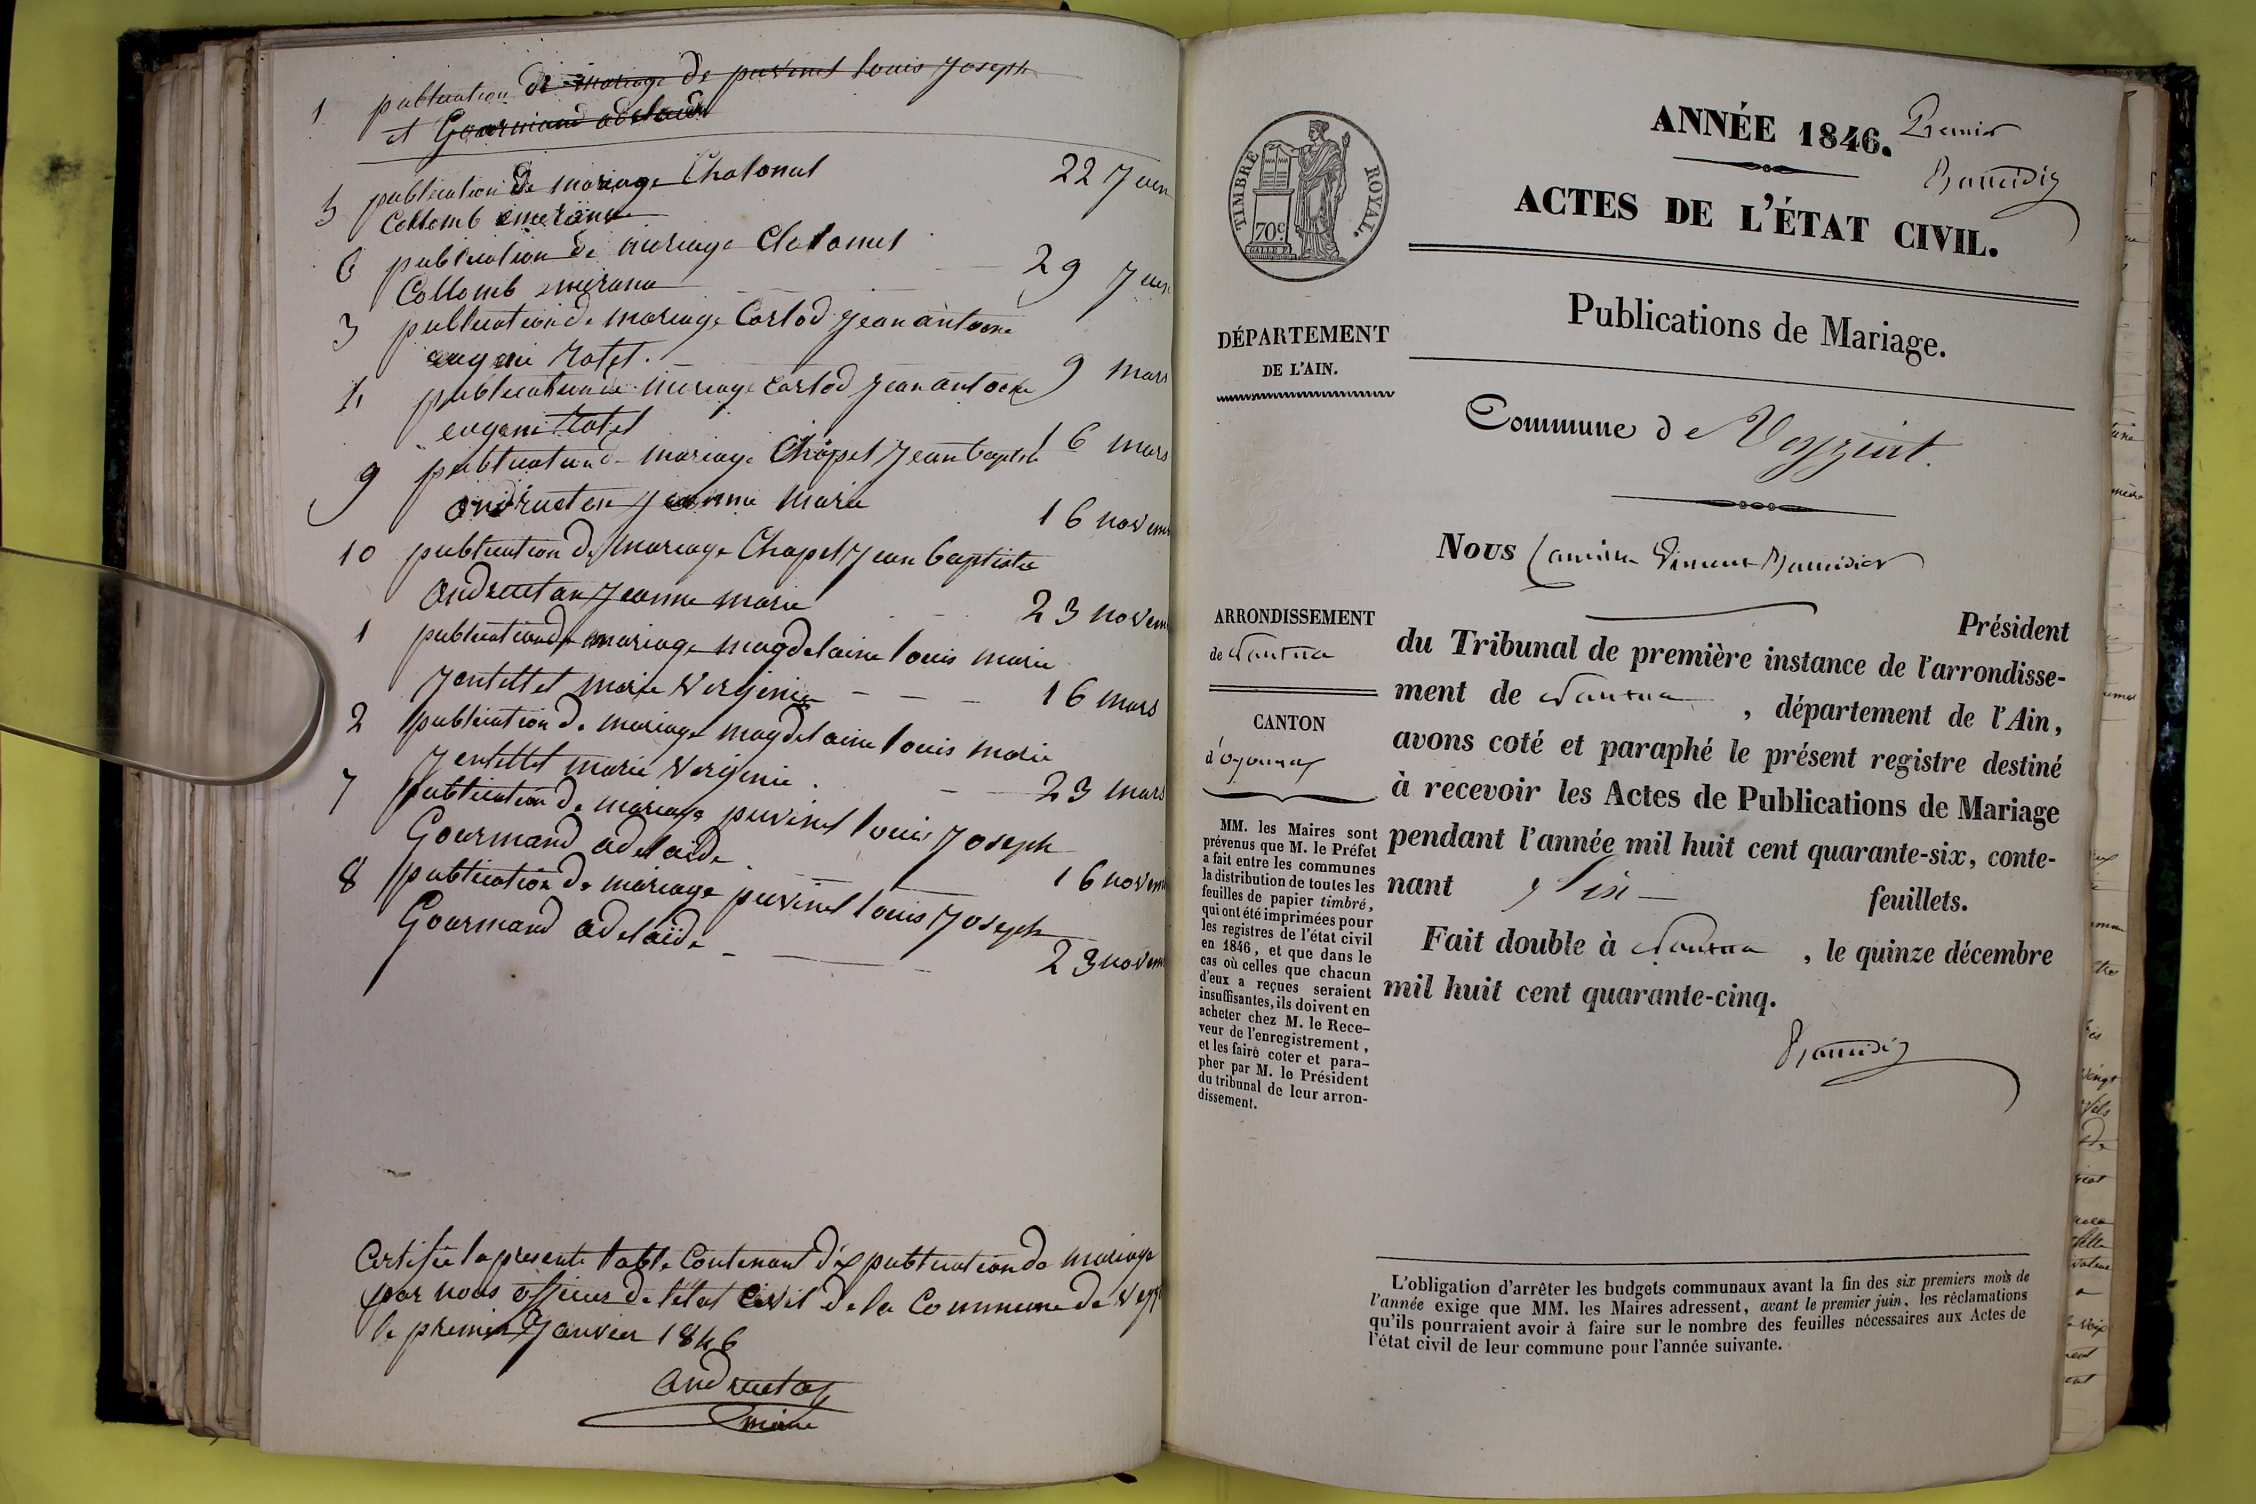 1 publication de mariage de puvinel louis Joseph
et Gourmand adelaide
5 publication de mariage Chatonul
Collomb 22 Juin
6 publication de mariage Chatonul
Collomb 29 Juin
3 publication de mariage Carlod Jean antoine
eugeni Rotet. 9 mars
4 publication de mariage Carlod Jean antoine
eugeni Rotet 16 mars
9 publication de mariage Chapel Jean baptiste
andructan Jeanne marie 16 novem
10 publication de mariage Chapel Jean baptiste
andructan Jeanne marie 23 novem
1 publication de mariage magdelaine louis marie
Jentellet marie Vergenie 16 mars
2 publication de mariage magdelaine louis marie
Jentellet marie Vergenie 23 mars
7 publication de mariage puvinel louis Joseph
Gourmand adelaide 16 novem
8 publication de mariage puvinel louis Joseph
Gourmand adelaïde 23 novem
Certifiée la presente table Contenant dix publication de mariage
par nous officier de l'etat Civil de la Commune de Veyz
le premier Janvier 1846
andructan
maire
ANNÉE 1846. Premier
ACTES DE L'ÉTAT CIVIL.
TIMBRE ROYAL.
70c
Publications de Mariage.
DÉPARTEMENT
DE L'AIN.
Commune de Veyziat.
Nous
Président
ARRONDISSEMENT
de Nantua
CANTON
d'Oyonnax
MM. les Maires sont
prévenus que M. le Préfet
a fait entre les communes
la distribution de toutes les
feuilles de papier timbré,
qui ont été imprimées pour
les registres de l'état civil
en 1846, et que dans le
cas où celles que chacun
d'eux a reçues seraient
insuffisantes, ils doivent en
acheter chez M. le Rece-
veur de l'enregistrement,
et les faire coter et para-
pher par M. le Président
du tribunal de leur arron-
dissement.
du Tribunal de première instance de l'arrondisse-
ment de Nantua, département de l'Ain,
avons coté et paraphé le présent registre destiné
à recevoir les Actes de Publications de Mariage
pendant l'année mil huit cent quarante-six, conte-
nant six feuillets.
Fait double à Nantua, le quinze décembre
mil huit cent quarante-cinq.
L'obligation d'arrêter les budgets communaux avant la fin des six premiers mois de
l'année exige que MM. les Maires adressent, avant le premier juin, les réclamations
qu'ils pourraient avoir à faire sur le nombre des feuilles nécessaires aux Actes de
l'état civil de leur commune pour l'année suivante.